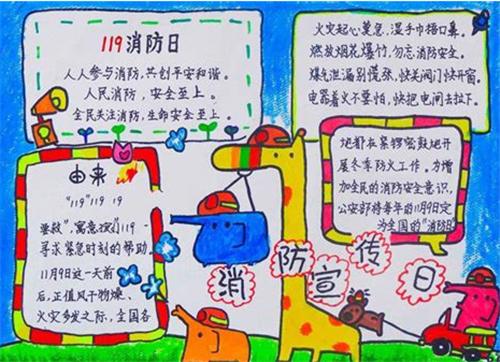 119消防日
人人参与消防，共创平安和谐。
人民消防，安全至上。
全民关注消防，生命安全至上。
火灾起心莫急，湿手巾捂口鼻。
燃放烟花爆竹，勿忘消防安全。
煤气泄漏别慌张，快关阀门快开窗。
电器着火不要怕，快把电闸去拉下。
由来
"119" 119 19
"，寓意 119
寻求紧急时刻的帮助。
11月9日这一天前
后，正值风干物燥、
火灾多发之际，全国各
地都在紧锣密鼓地开
展冬季防火工作。为增
加全民的消防安全意识，
公安部将每年的11月9日定
为全国的"消防日
消防宣传日